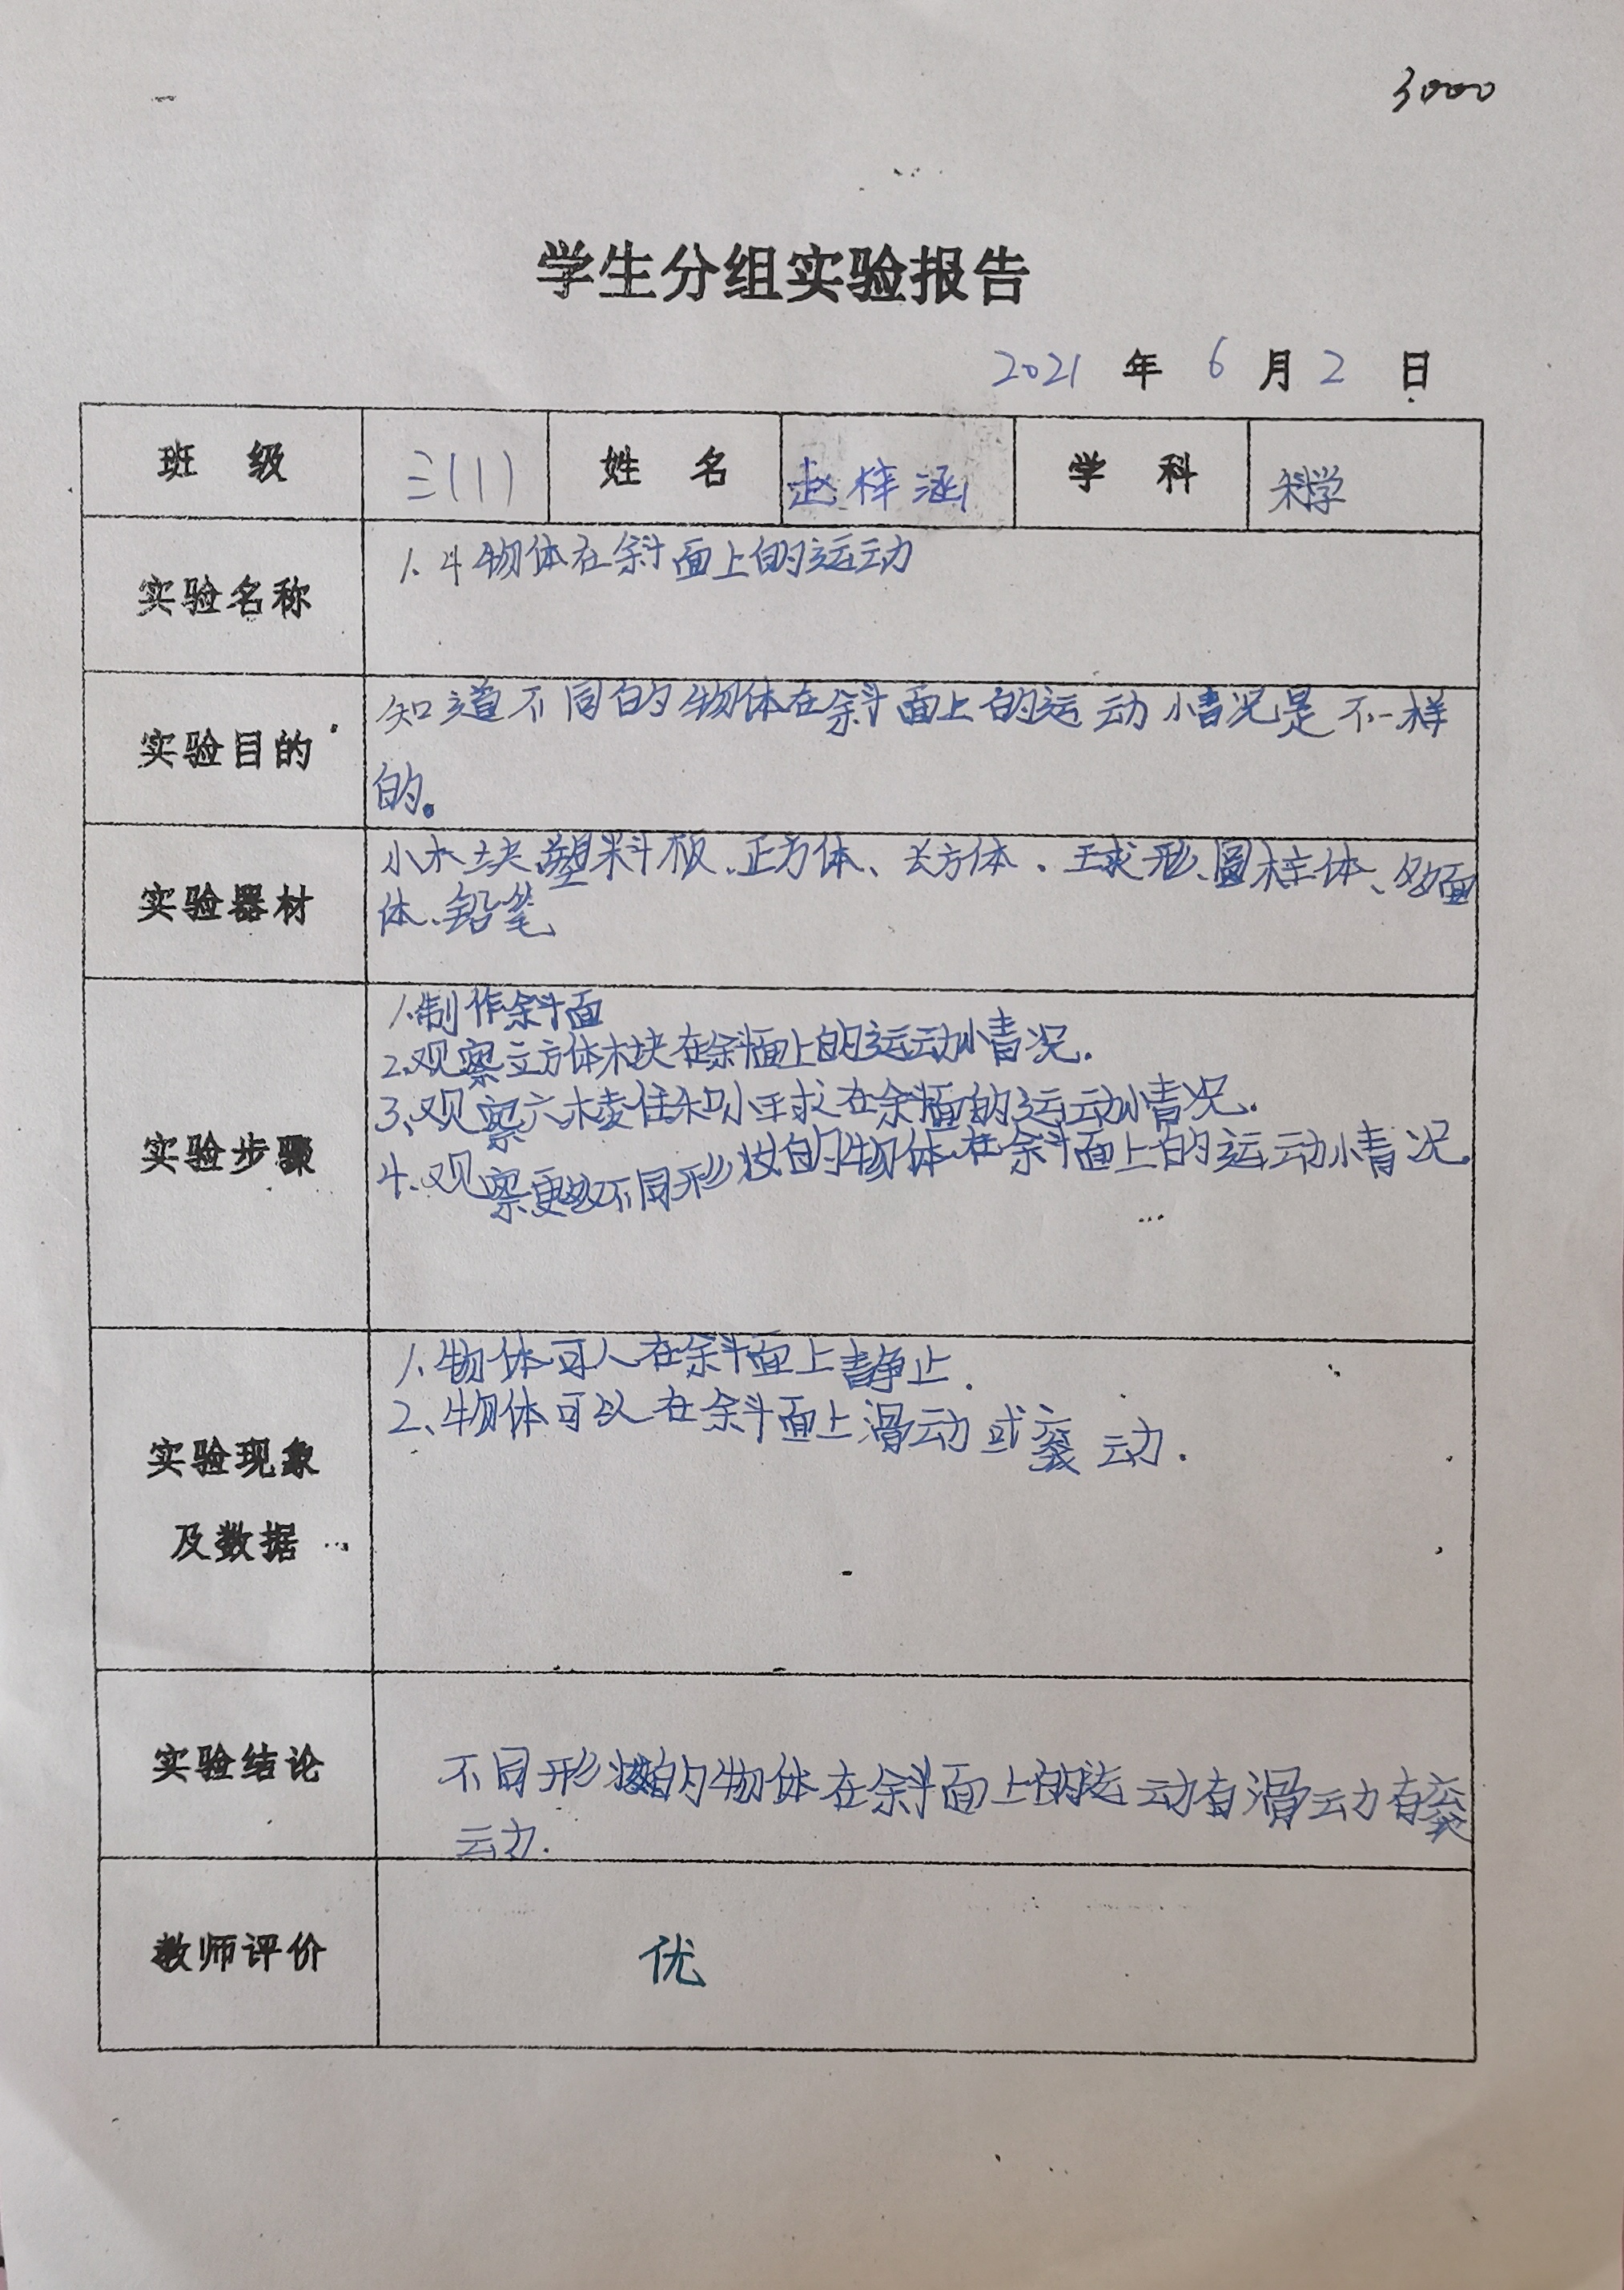 3000
学生分组实验报告
2021 年 6 月 2 日
班 级 三(1) 姓 名 赵梓涵 学 科 科学
实验名称 1.4物体在斜面上的运动
实验目的 知道不同的物体在斜面上的运动情况是不一样
的。
实验器材 小木块、塑料板、正方体、长方体、球形、圆柱体、多面
体、铅笔
实验步骤
1.制作斜面
2.观察立方体木块在斜面上的运动情况.
3.观察六棱住和小球在斜面的运动情况.
4.观察更多不同形状的物体在斜面上的运动情况.
实验现象
及数据
1.物体可人在斜面上静止.
2、物体可以在斜面上滑动或衮动.
实验结论 不同形状的物体在斜面上的运动有滑动有衮
动.
教师评价 优